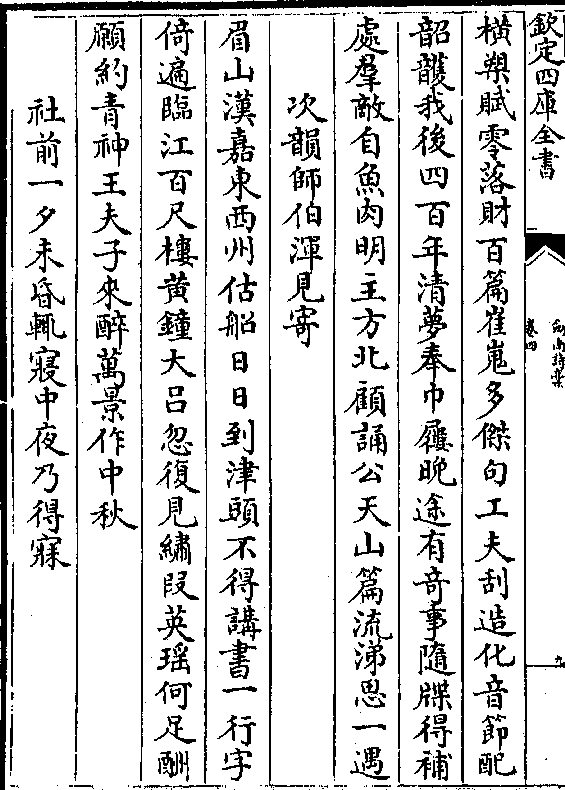 欽定四庫全書
劍南詩稾
卷四
九
橫槊賦零落財百篇崔嵬多傑句工夫刮造化音節配
韶頀我後四百年清夢奉巾屨晚途有竒事隨牒得補
處羣敵自魚肉明主方北顧誦公天山篇流涕思一遇
次韻師伯渾見寄
眉山漢嘉東西州估船日日到津頭不得講書一行字
倚遍臨江百尺樓黃鐘大呂忽復見繡段英瑤何足酬
願約青神王夫子來醉萬景作中秋
社前一夕未昏輒寢中夜乃得寐